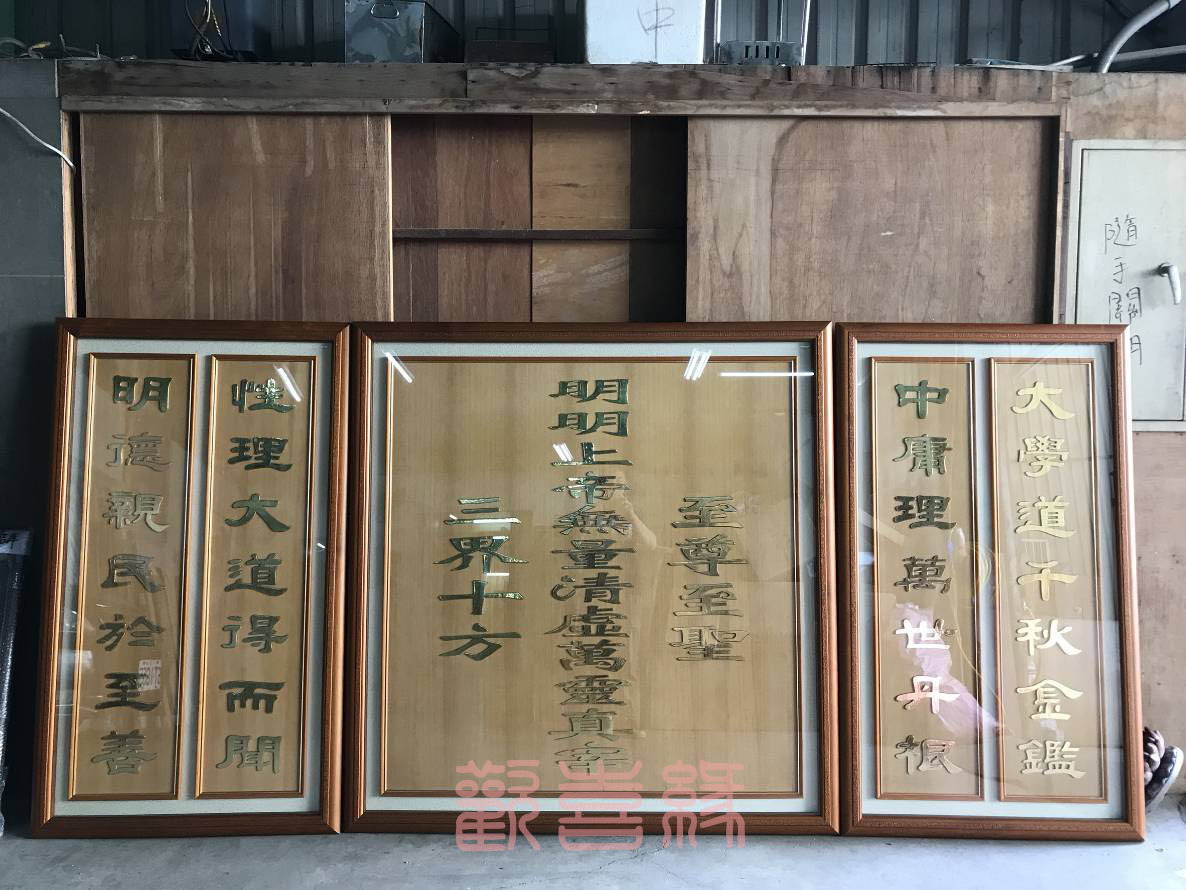 中
隨手關門
大學道千秋金鑑
中庸理萬世丹根
至尊至聖
明明上帝無量清虛萬靈真宰
三界十方
性理大道得而聞
明德親民於至善
歡喜緣